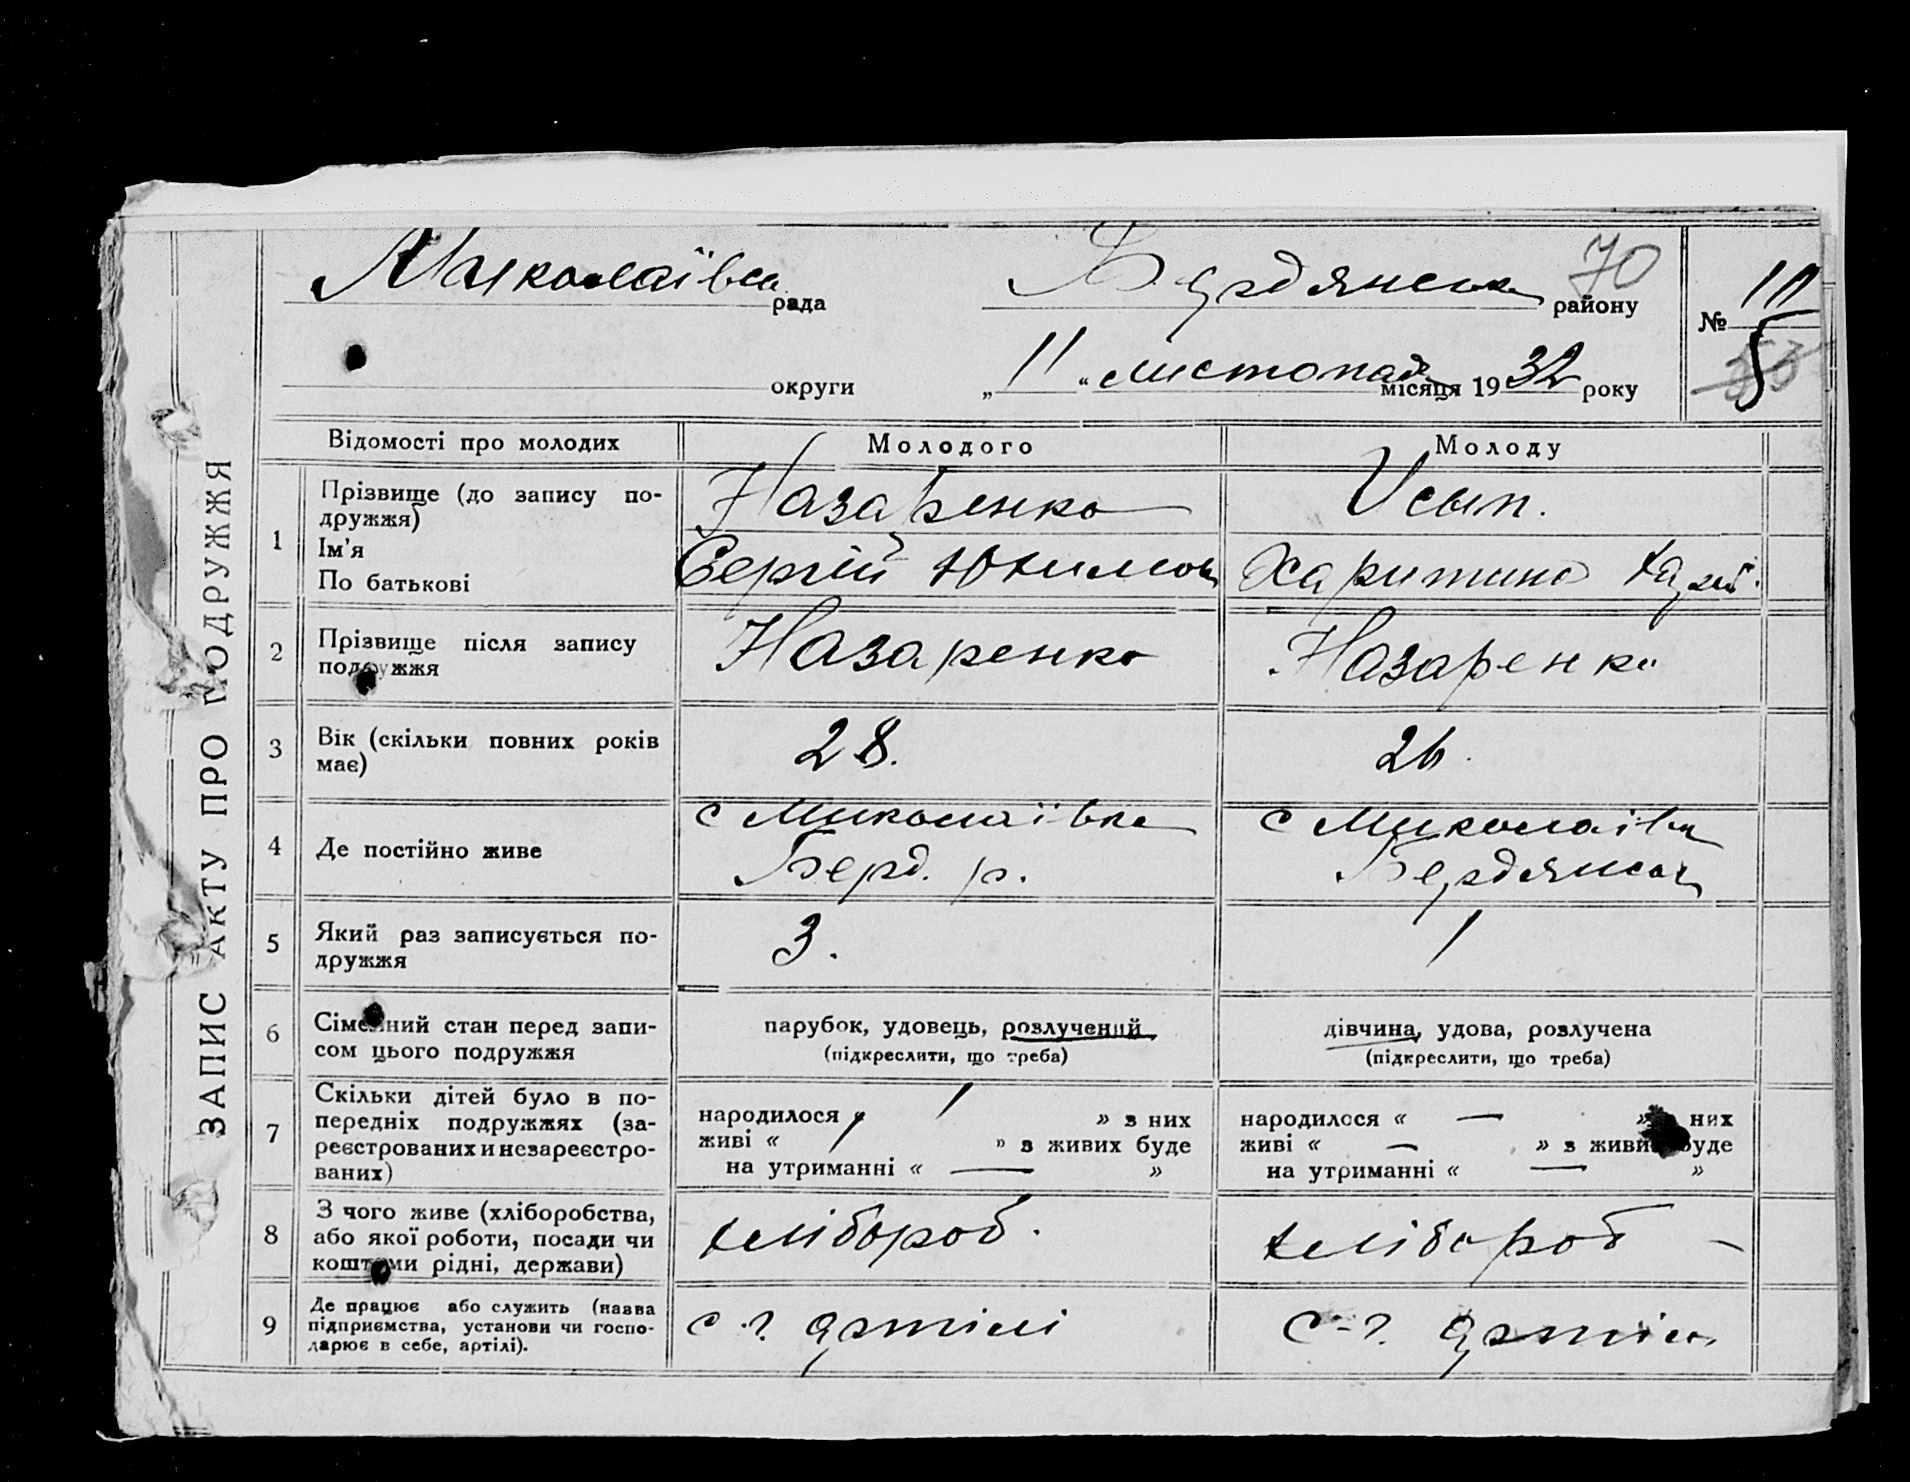 ЗАПИС АКТУ ПРО ПОДРУЖЖЯ
Миколаївка рада
Бердянськ району
70
№
округи
„ 11 “ листопад місяця 1932 року
5
Відомості про молодих
Молодого
Молоду
1
Прізвище (до запису по-
дружжя)
Ім'я
По батькові
Назаренко
Сергій Юхимов
Усып.
Харитина
2
Прізвище після запису
подружжя
Назаренко
Назаренко
3
Вік (скільки повних років
має)
28.
26.
4
Де постійно живе
с Миколаївка
Берд. р.
с Миколаївка
Бердянськ
5
Який раз записується по-
дружжя
3.
1
6
Сімейний стан перед запи-
сом цього подружжя
парубок, удовець, розлучений
(підкреслити, що треба)
дівчина, удова, розлучена
(підкреслити, що треба)
7
Скільки дітей було в по-
передніх подружжях (за-
реєстрованих и незареєстро-
ваних)
народилося « 1 » з них
живі « 1 » з живих буде
на утриманні « — »
народилося « — » з них
живі « — » з живих буде
на утриманні « — »
8
З чого живе (хліборобства,
або якої роботи, посади чи
коштами рідні, держави)
хлібороб.
хлібороб –
9
Де працює або служить (назва
підприємства, установи чи госпо-
дарює в себе, артілі).
с.г. артілі
с-г. артіль